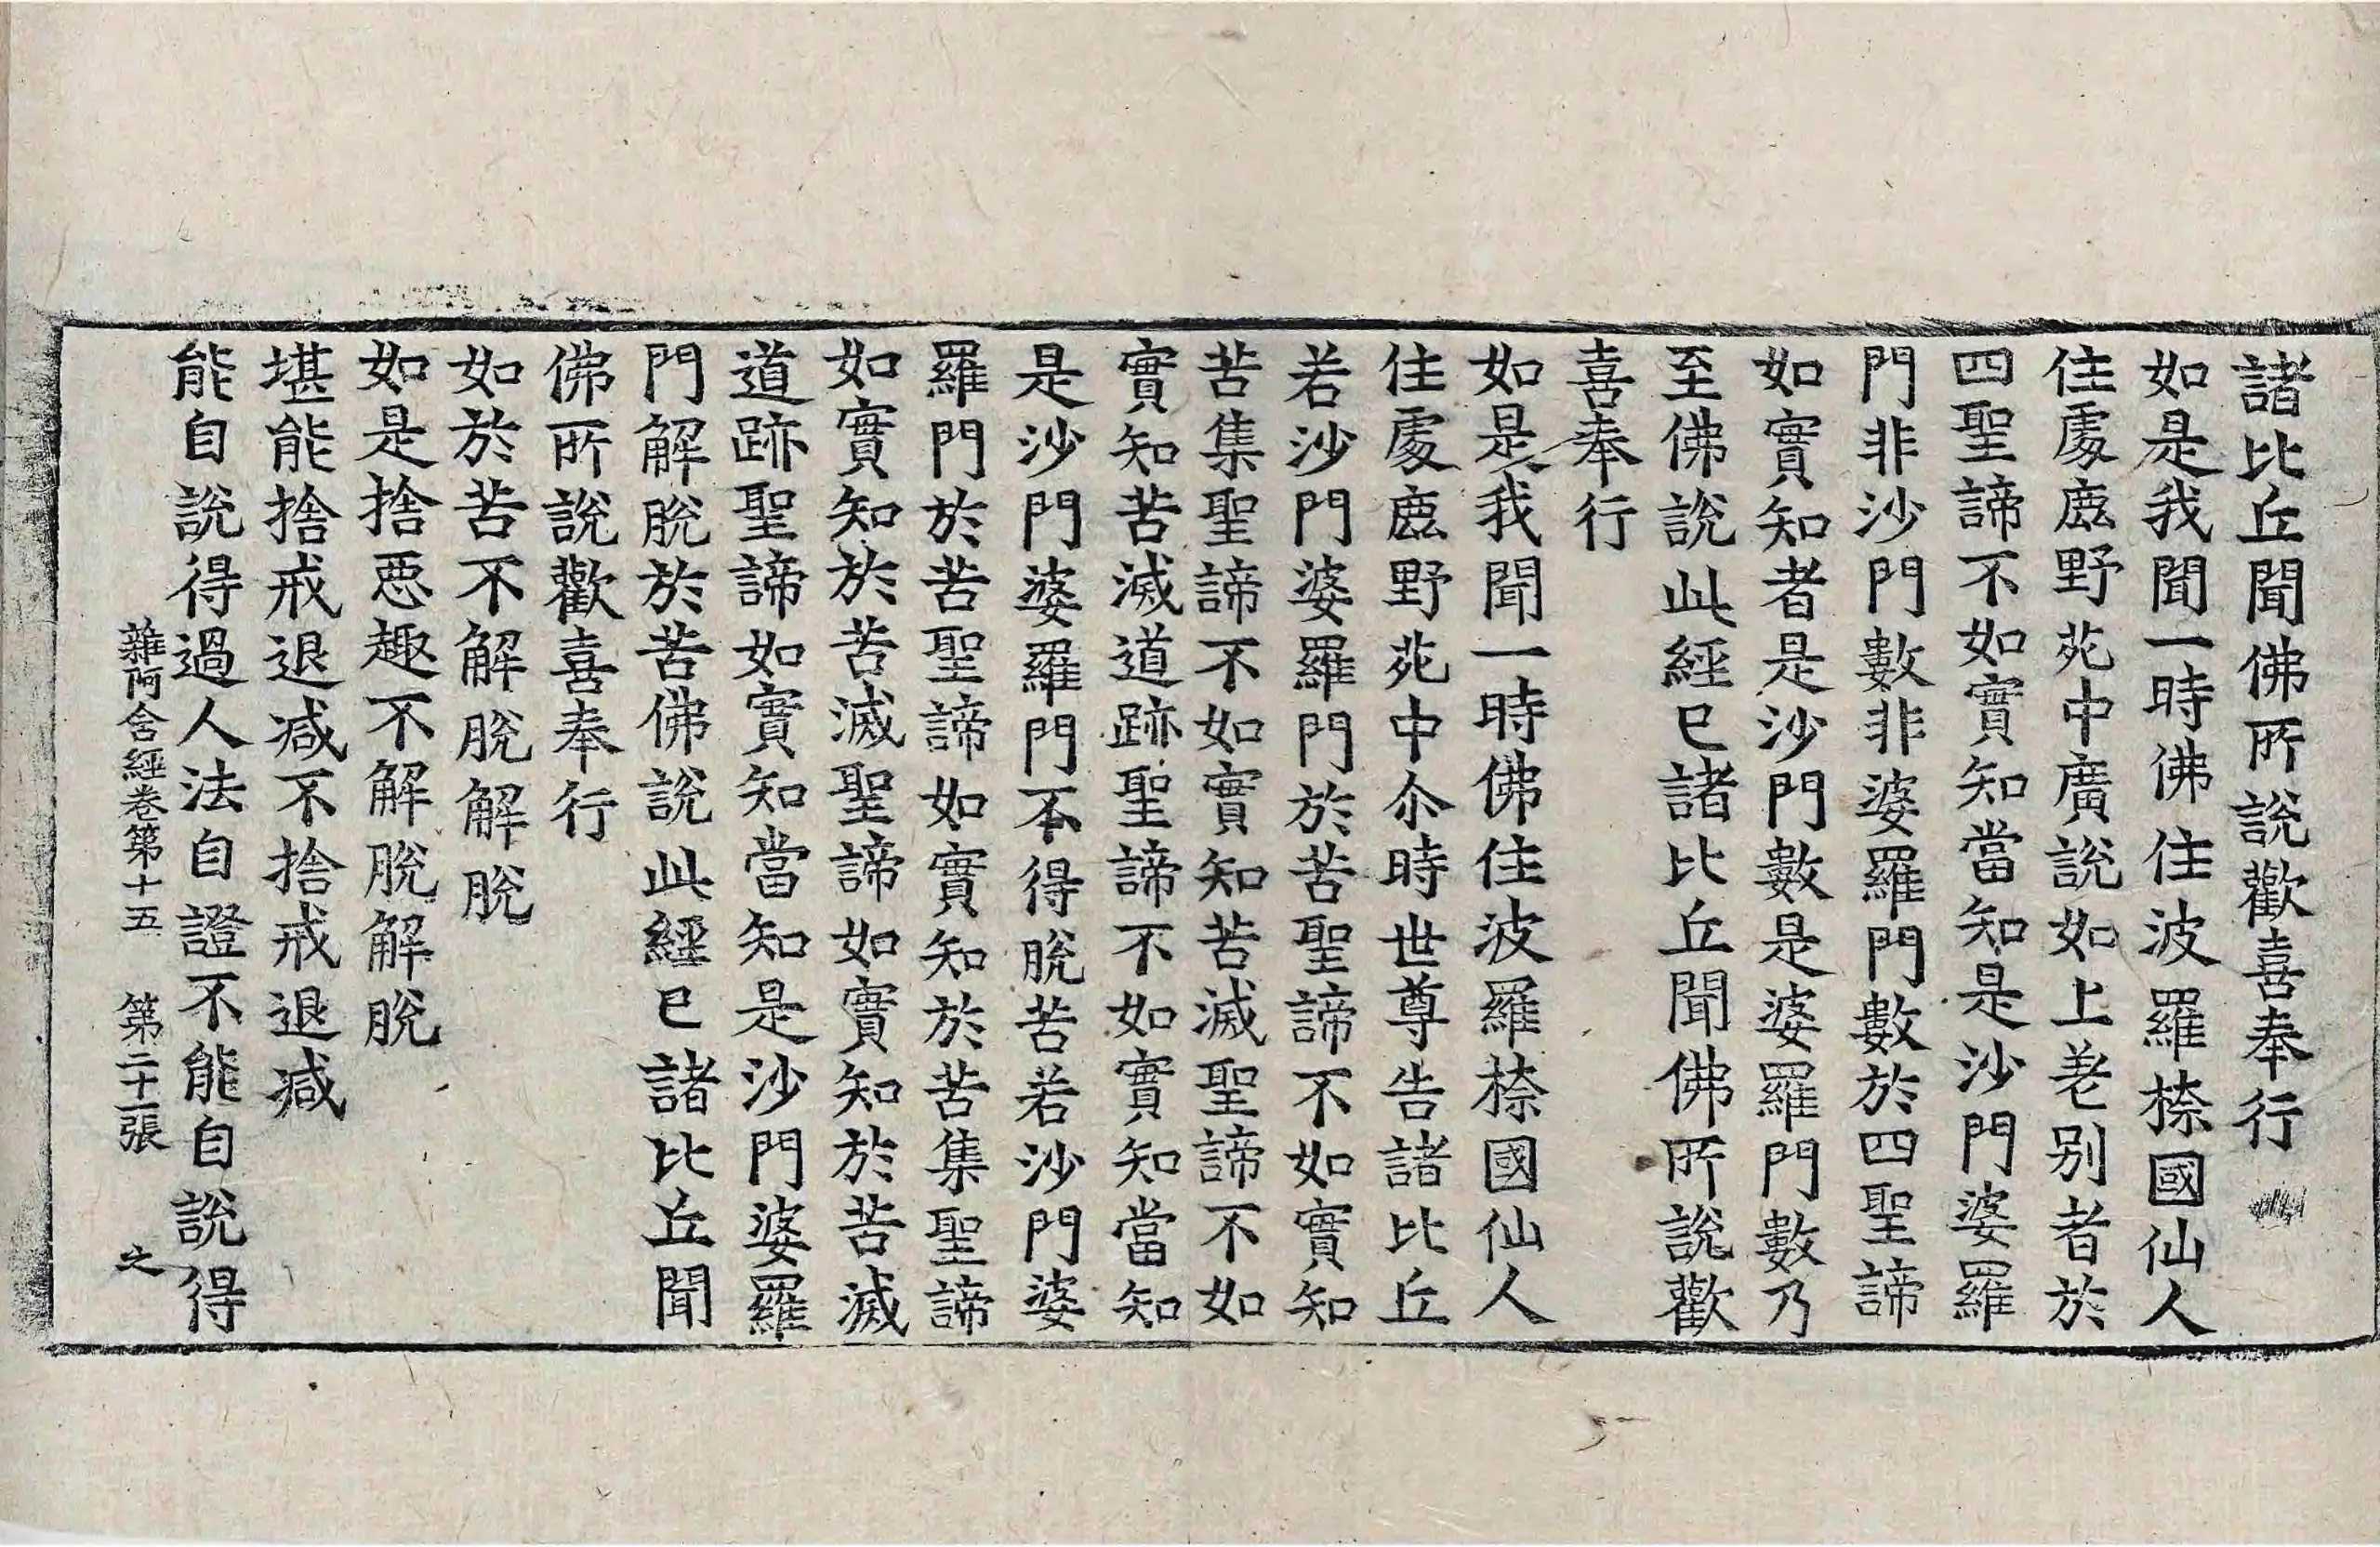 諸比丘聞佛所說歡喜奉行
如是我聞一時佛住波羅㮈國仙人
住處鹿野苑中廣說如上差別者於
四聖諦不如實知當知是沙門婆羅
門非沙門數非婆羅門數於四聖諦
如實知者是沙門數是婆羅門數乃
至佛說此經已諸比丘聞佛所說歡
喜奉行
如是我聞一時佛住波羅㮈國仙人
住處鹿野苑中尒時世尊告諸比丘
若沙門婆羅門於苦聖諦不如實知
苦集聖諦不如實知苦滅聖諦不如
實知苦滅道跡聖諦不如實知當知
是沙門婆羅門不得脫苦若沙門婆
羅門於苦聖諦如實知於苦集聖諦
如實知於苦滅聖諦如實知於苦滅
道跡聖諦如實知當知是沙門婆羅
門解脫於苦佛說此經已諸比丘聞
佛所說歡喜奉行
如於苦不解脫解脫
如是捨惡趣不解脫解脫
堪能捨戒退減不捨戒退減
能自說得過人法自證不能自說得
雜阿含經卷第十五 第二十一張 之